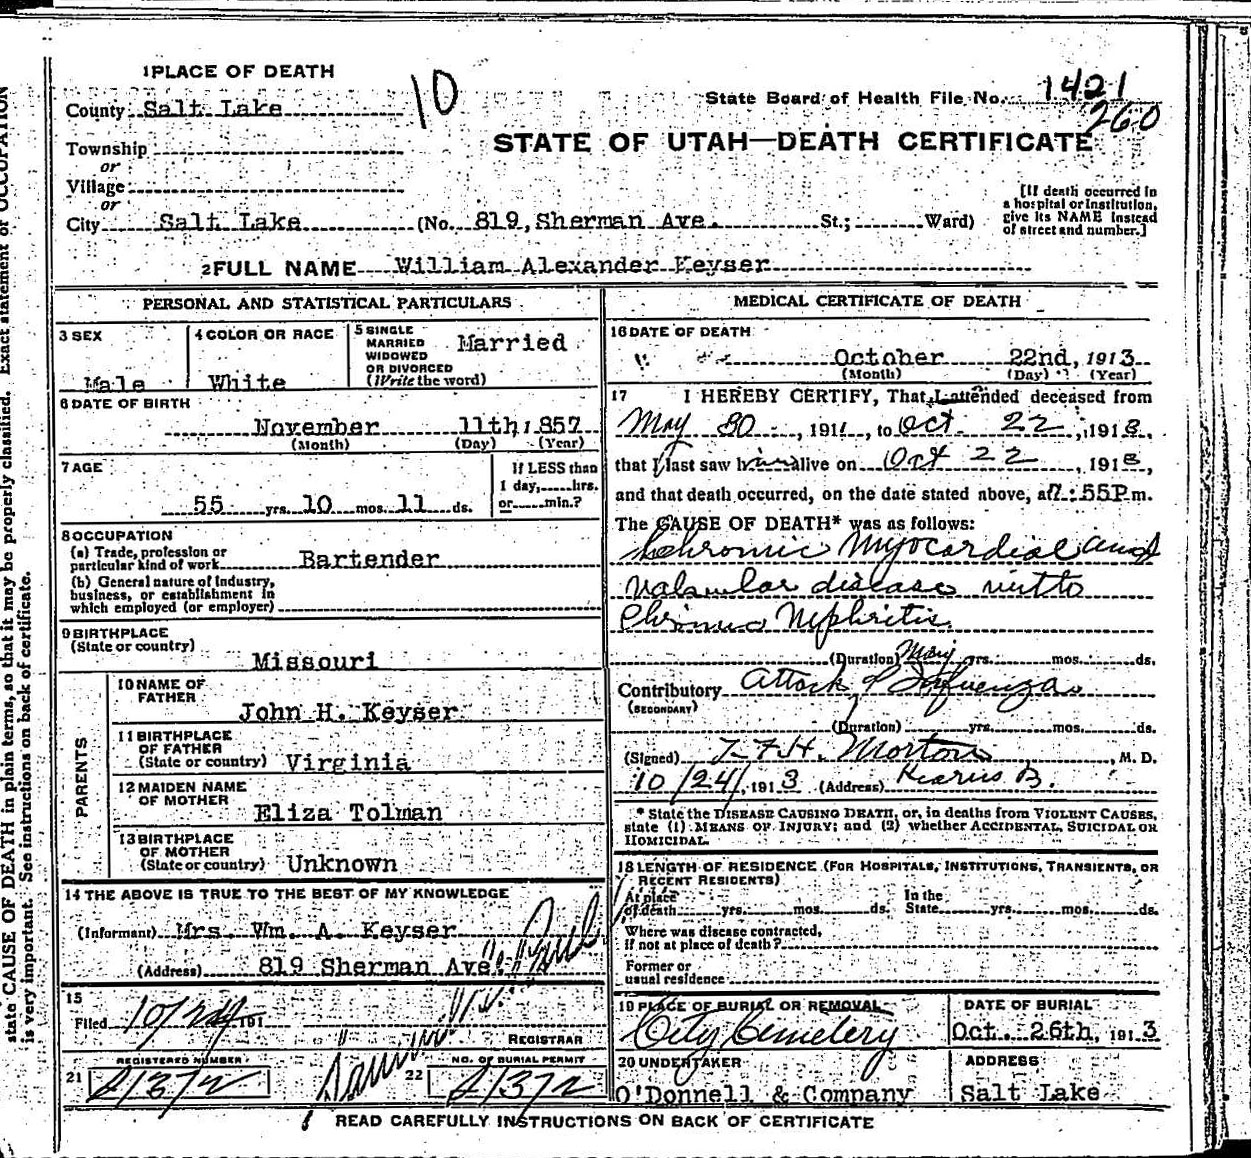 1 PLACE OF DEATH
County Salt Lake
10
State Board of Health File No. 1421
260
STATE OF UTAH—DEATH CERTIFICATE
Township
or
Village
or
City Salt Lake (No. 819, Sherman Ave. St.; Ward)
[If death occurred in
a hospital or institution,
give its NAME instead
of street and number.]
2 FULL NAME William Alexander Keyser
PERSONAL AND STATISTICAL PARTICULARS
3 SEX
Male
4 COLOR OR RACE
White
5 SINGLE
MARRIED
WIDOWED
OR DIVORCED
(Write the word)
Married
6 DATE OF BIRTH
November 11th, 1857
(Month) (Day) (Year)
7 AGE
55 yrs. 10 mos. 11 ds.
If LESS than
1 day, hrs.
or min.?
8 OCCUPATION
(a) Trade, profession or
particular kind of work Bartender
(b) General nature of industry,
business, or establishment in
which employed (or employer)
9 BIRTHPLACE
(State or country)
Missouri
PARENTS
10 NAME OF
FATHER
John H. Keyser
11 BIRTHPLACE
OF FATHER
(State or country) Virginia
12 MAIDEN NAME
OF MOTHER
Eliza Tolman
13 BIRTHPLACE
OF MOTHER
(State or country) Unknown
14 THE ABOVE IS TRUE TO THE BEST OF MY KNOWLEDGE
(Informant) Mrs. Wm. A. Keyser
(Address) 819 Sherman Ave.
15
Filed 10/24 191
REGISTRAR
REGISTERED NUMBER
21
NO. OF BURIAL PERMIT
22
MEDICAL CERTIFICATE OF DEATH
16 DATE OF DEATH
October 22nd, 1913
(Month) (Day) (Year)
17 I HEREBY CERTIFY, That I attended deceased from
May 30, 1911, to Oct. 22, 1913,
that I last saw him alive on Oct 22, 1913,
and that death occurred, on the date stated above, at 7:55P m.
The CAUSE OF DEATH* was as follows:
Chronic Myocardial and
valvular disease with
Chronic Nephritis.
(Duration) Many yrs. mos. ds.
Contributory Attack of Influenza
(SECONDARY)
(Duration) yrs. mos. ds.
(Signed) T. F. H. Morton, M. D.
10/24, 1913 (Address) Kearns B.
* State the DISEASE CAUSING DEATH, or, in deaths from VIOLENT CAUSES,
state (1) MEANS OF INJURY; and (2) whether ACCIDENTAL, SUICIDAL OR
HOMICIDAL.
18 LENGTH OF RESIDENCE (FOR HOSPITALS, INSTITUTIONS, TRANSIENTS, OR
RECENT RESIDENTS)
At place
of death yrs. mos. ds.
In the
State yrs. mos. ds.
Where was disease contracted,
if not at place of death?
Former or
usual residence
19 PLACE OF BURIAL OR REMOVAL
City Cemetery
DATE OF BURIAL
Oct. 26th, 1913
20 UNDERTAKER
O'Donnell & Company
ADDRESS
Salt Lake
READ CAREFULLY INSTRUCTIONS ON BACK OF CERTIFICATE
state CAUSE OF DEATH in plain terms, so that it may be properly classified. Exact statement of OCCUPATION
is very important. See instructions on back of certificate.